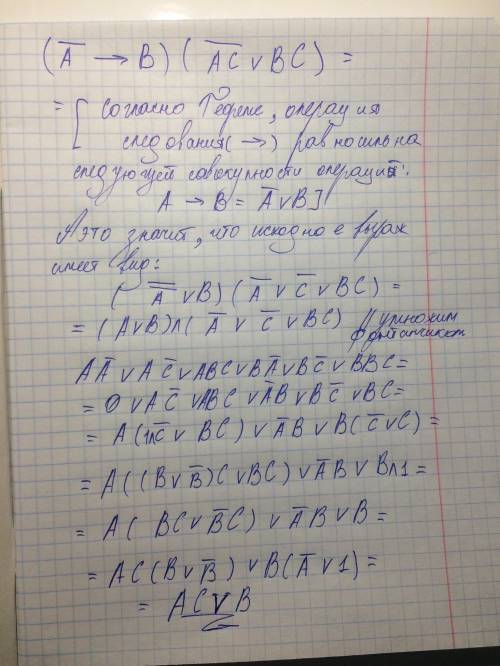 (A̅ → B) ( A̅C̅ ∨ BC ) =
= [ согласно теореме, операция
следования (→) равносильна
следующей совокупности операций:
A → B = A̅∨B ]
А это значит, что исходное выраж
имеет вид:
( A̿ ∨ B) ( A̅ ∨ C̅ ∨ BC ) =
= (A∨B)∧( A̅ ∨ C̅ ∨ BC) // умножим фонтанчиком
AA̅ ∨ AC̅ ∨ ABC ∨ BA̅ ∨ BC̅ ∨ BBC =
= 0 ∨ AC̅ ∨ ABC ∨ A̅B ∨ BC̅ ∨ BC =
= A (1∧C̅ ∨ BC) ∨ A̅B ∨ B(C̅ ∨ C) =
= A((B∨B̅)C ∨ BC) ∨ A̅B ∨ B∧1 =
= A( BC ∨ B̅C) ∨ A̅B ∨ B =
= AC (B ∨ B̅) ∨ B(A̅ ∨ 1) =
= AC ∨ B